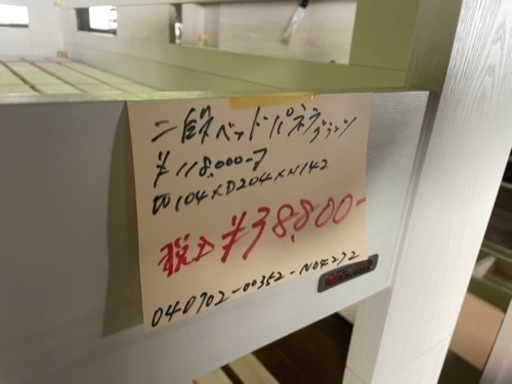 二段ベッドパネラグラン
¥118.000-
W104×D204×H142
税込¥38,800-
040702-00352-N04272